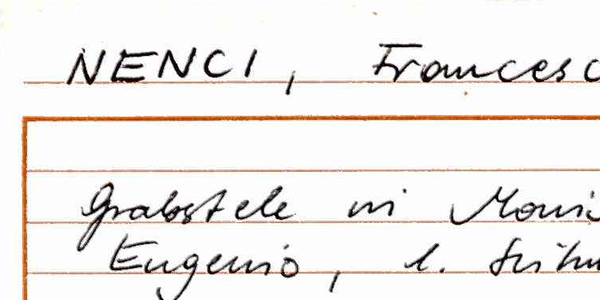 NENCI, Francesc
Grabstele in
Eugenio, l.